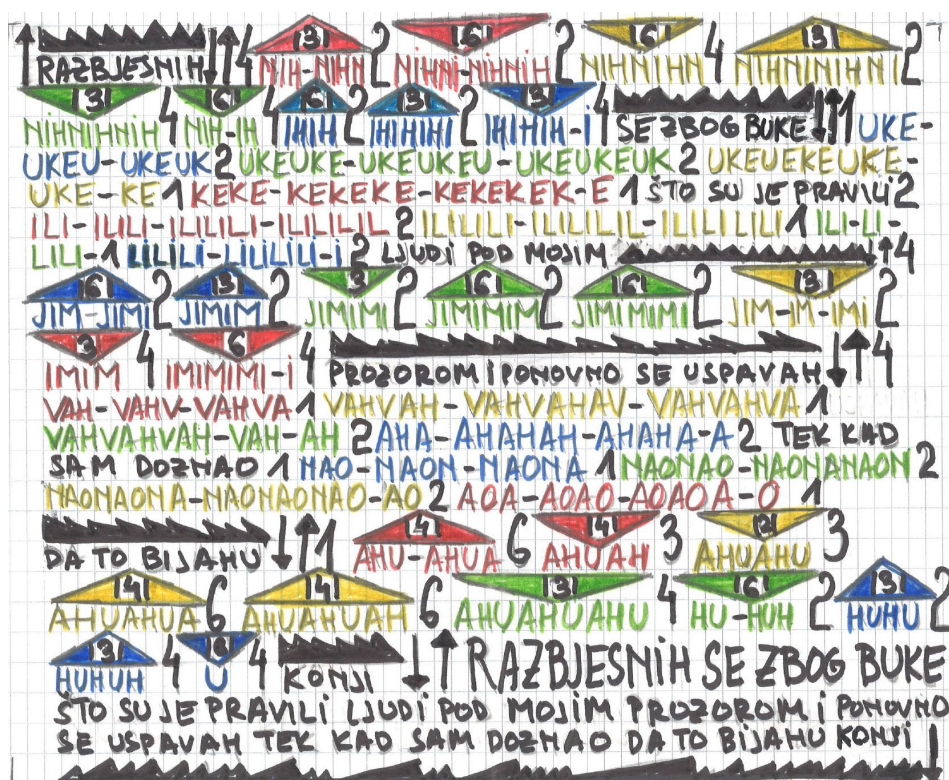 3 6 6 3
RAZBJESNIH 4 NIH-NIHN 2 NIHNI-NIHNIH 2 NIHNIHN 4 NIHNINIHNI 2
3 6 6 3 3
NIHNIHNIH 4 NIH-IH 4 IHIH 2 IHIHIHI 2 IHIHIH-I 4 SE ZBOG BUKE 1 UKE-
UKEU-UKEUK 2 UKEUKE-UKEUKEU-UKEUKEUK 2 UKEUEKEUKE-
UKE-KE 1 KEKE-KEKEKE-KEKEKEK-E 1 ŠTO SU JE PRAVILI 2
ILI-ILILI-ILILILI-ILILILIL 2 ILILILI-ILILILIL-ILILILILI 1 ILI-LI-
LILI-1 LILILI-LILILILI-I 2 LJUDI POD MOJIM 4
6 3 3 6 6 3
JIM-JIMI 2 JIMIM 2 JIMIMI 2 JIMIMIM 2 JIMIMIMI 2 JIM-IM-IMI 2
3 6
IMIM 4 IMIMIMI-I 4 PROZOROM I PONOVNO SE USPAVAH 4
VAH-VAHV-VAHVA 1 VAHVAH-VAHVAHAV-VAHVAHVA 1
VAHVAHVAH-VAH-AH 2 AHA-AHAHAH-AHAHA-A 2 TEK KAD
SAM DOZNAO 1 NAO-NAON-NAONA 1 NAONAO-NAONANAON 2
NAONAONA-NAONAONAO-AO 2 AOA-AOAO-AOAOA-O 1
4 4 3
DA TO BIJAHU 1 AHU-AHUA 6 AHUAH 3 AHUAHU 3
4 4 3 6 3
AHUAHUA 6 AHUAHUAH 6 AHUAHUAHU 4 HU-HUH 2 HUHU 2
3 3
HUHUH 4 U 4 KONJI RAZBJESNIH SE ZBOG BUKE
ŠTO SU JE PRAVILI LJUDI POD MOJIM PROZOROM I PONOVNO
SE USPAVAH TEK KAD SAM DOZNAO DA TO BIJAHU KONJI